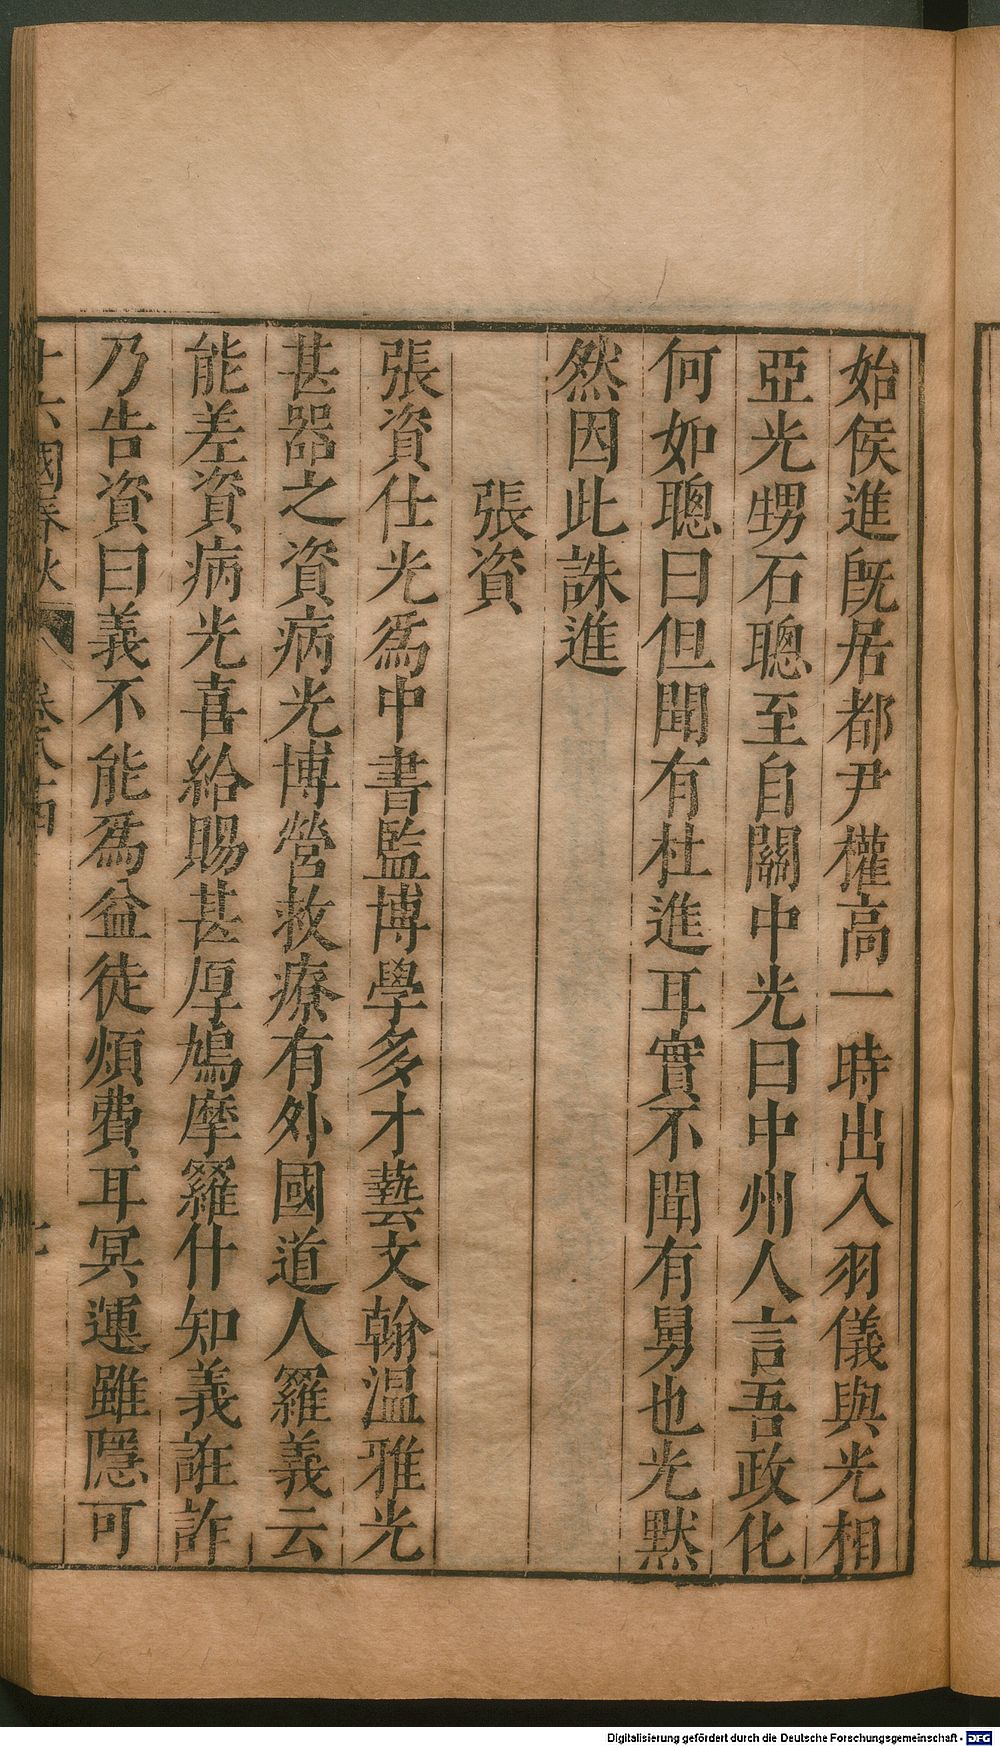 始侯進既居都尹權高一時出入羽儀與光相
亞光甥石聰至自關中光曰中州人言吾政化
何如聰曰但聞有杜進耳實不聞有舅也光默
然因此誅進
張資
張資仕光爲中書監博學多才藝文翰温雅光
甚器之資病光博營救療有外國道人羅義云
能差資病光喜給賜甚厚鳩摩羅什知義誑詐
乃告資曰義不能爲益徒煩費耳冥運雖隱可
十六國春秋 卷八十四
Digitalisierung gefördert durch die Deutsche Forschungsgemeinschaft - DFG